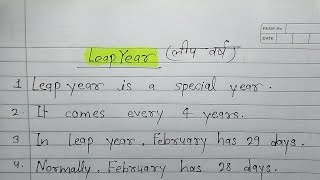 PAGE No.
DATE
Leap Year (लीप वर्ष)
1 Leap year is a special year.
2. It comes every 4 years.
3 In leap year, February has 29 days.
4. Normally, February has 28 days.